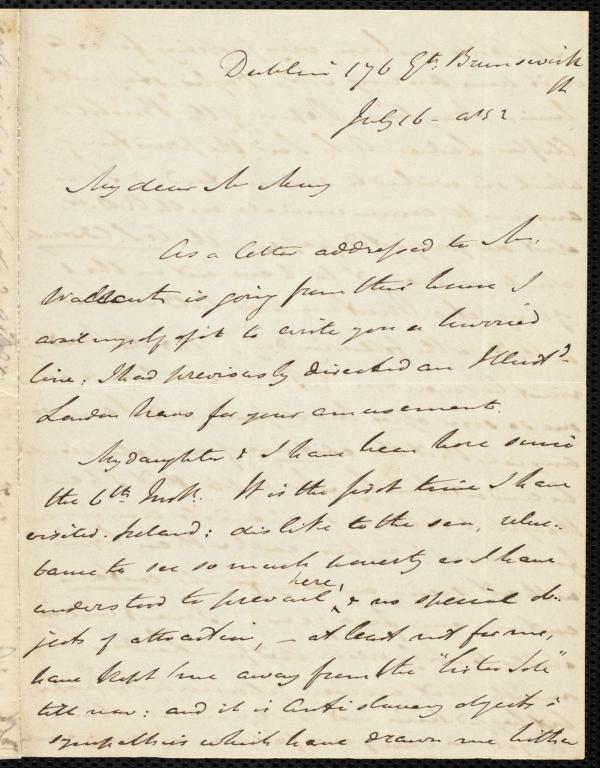 Dublin 176 Gt. Brunswick
St
July 16 - 1852
My dear Mr May
As a letter addressed to Mr.
is going from this house I
avail myself of it to write you a hurried
line; I had previously directed an Illustd.
London News for your amusement.
My daughter & I have been here since
the 6th Inst. It is the first time I have
visited Ireland: dislike to the sea, reluc-
tance to see so much poverty as I have
understood to prevail here, & no special ob-
jects of attraction, - at least not for me,
have kept me away from the "Sister Isle"
till now: and it is antislavery objects &
sympathies which have drawn me hither